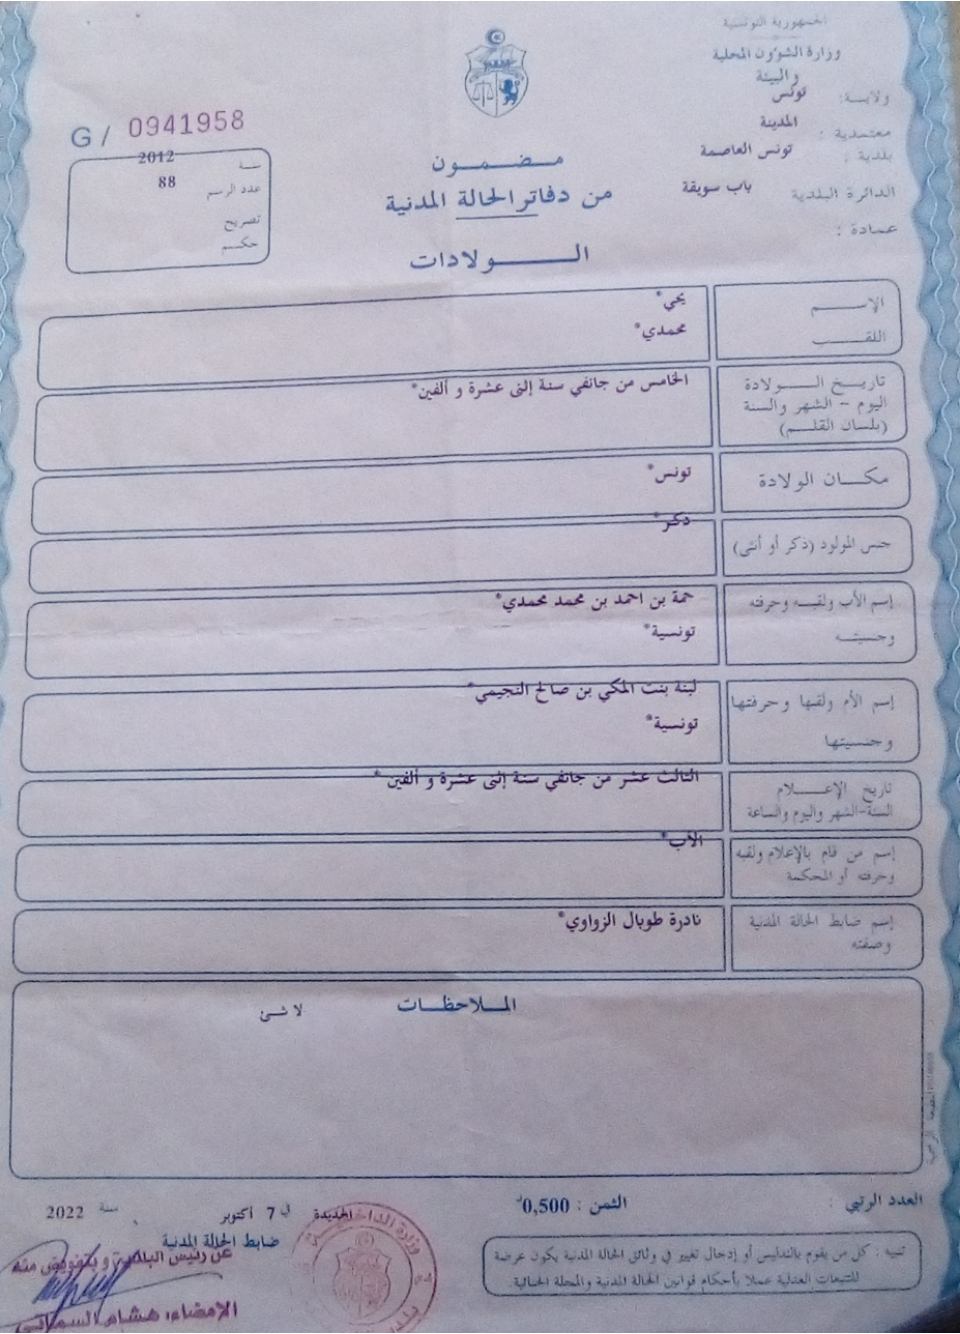 الجمهورية التونسية
وزارة الشؤون المحلية
والبيئة
ولاية: تونس
معتمدية : المدينة
بلدية : تونس العاصمة
الدائرة البلدية باب سويقة
عمادة :
G / 0941958
سنة 2012
عدد الرسم 88
تصريح
حكم
مضمون
من دفاتر الحالة المدنية
الولادات
الإسم يحي*
اللقب محمدي*
تاريخ الولادة الخامس من جانفي سنة إثنى عشرة و ألفين*
اليوم - الشهر والسنة
(بلسان القلم)
مكان الولادة تونس*
جنس المولود (ذكر أو أنثى) ذكر*
إسم الأب ولقبه وحرفته حمة بن احمد بن محمد محمدي*
وجنسيته تونسية*
إسم الأم ولقبها وحرفتها لبنة بنت المكي بن صالح النجيمي*
وجنسيتها تونسية*
تاريخ الإعلام الثالث عشر من جانفي سنة إثنى عشرة و ألفين*
السنة-الشهر واليوم والساعة
إسم من قام بالإعلام ولقبه الأب*
وحرفته أو المحكمة
إسم ضابط الحالة المدنية نادرة طوبال الزواوي*
وصفته
الملاحظات
لا شئ
العدد الرتبي :
الثمن : 0,500د
تنبيه : كل من يقوم بالتدليس أو إدخال تغيير في وثائق الحالة المدنية يكون عرضة
للتتبعات العدلية عملا بأحكام قوانين الحالة المدنية والمجلة الجنائية
الجديدة في 7 أكتوبر سنة 2022
ضابط الحالة المدنية
عن رئيس البلدية و بتفويض منه
الإمضاء: هشام السماتي
وزارة الداخلية